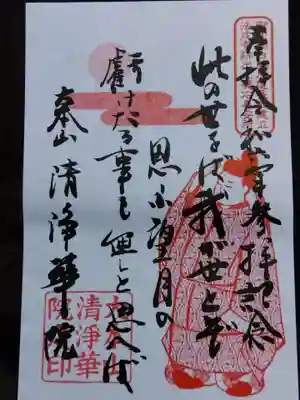 奉拝
参拝記念
此の世をば我が世とぞ
思ふ望月の
虧けたる事も無しと思へば
大本山 清浄華院
大本山
清淨華
院印